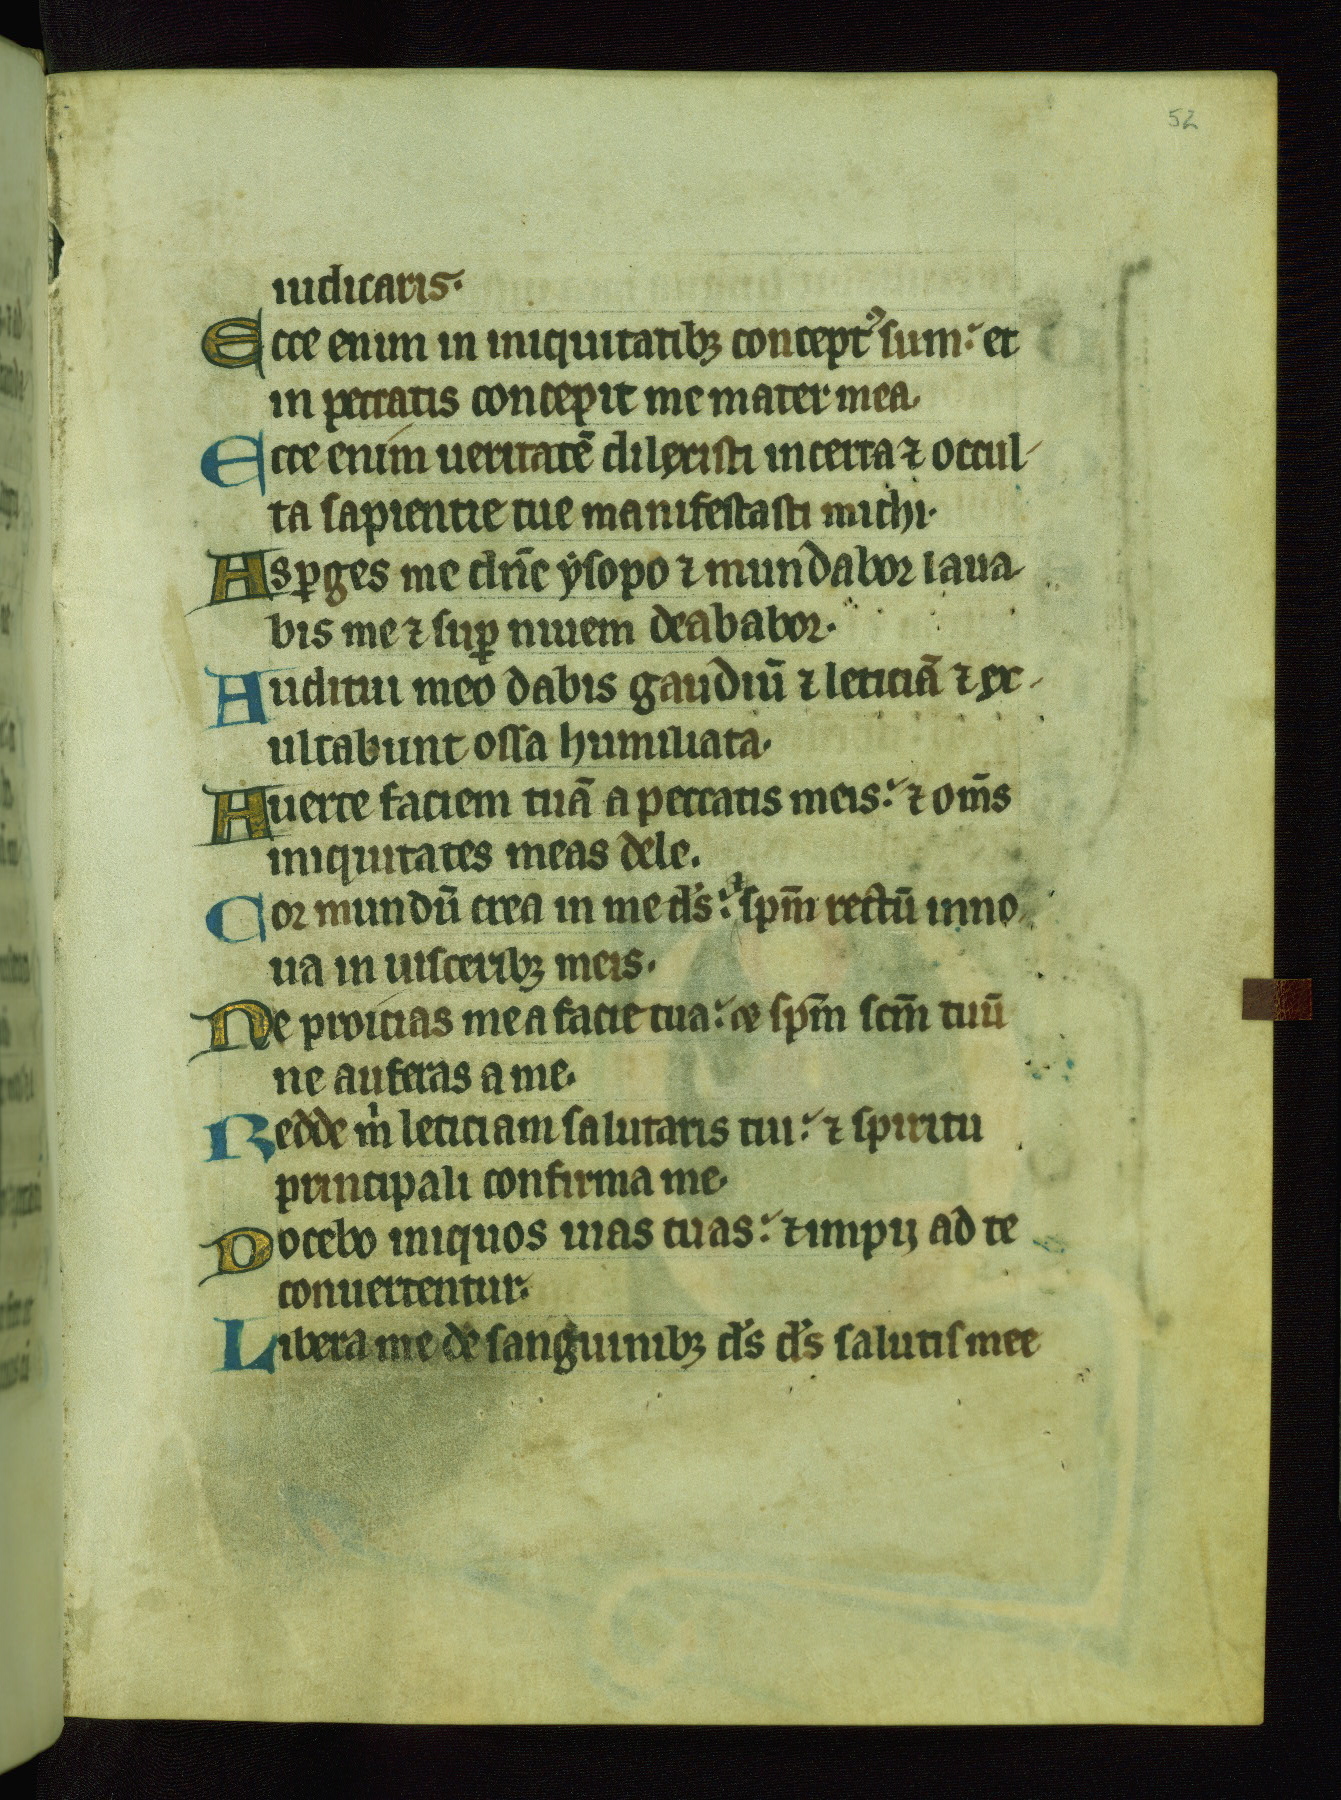 52
iudicaris.
Ecce enim in iniquitatibꝫ concept᾿ sum: et
in peccatis concepit me mater mea.
Ecce enim ueritatē dilexisti incerta ⁊ occul-
ta sapientie tue manifestasti michi.
Asꝑges me dn̄e ẏsopo ⁊ mundabor laua-
bis me ⁊ suꝑ niuem deababor.
Auditui meo dabis gaudiū ⁊ leticiā ⁊ ex-
ultabunt ossa humiliata.
Auerte faciem tuā a peccatis meis: ⁊ om̄s
iniquitates meas dele.
Cor mundū crea in me ds̄: ⁊ sp̄m rectū inno
ua in uisceribꝫ meis.
Ne proicias me a facie tua: et sp̄m scm̄ tuū
ne auferas a me.
Redde m̍ leticiam salutaris tui: ⁊ spiritu
principali confirma me.
Docebo iniquos uias tuas: ⁊ impij ad te
conuertentur.
Libera me de sanguinibꝫ ds̄ ds̄ salutis mee